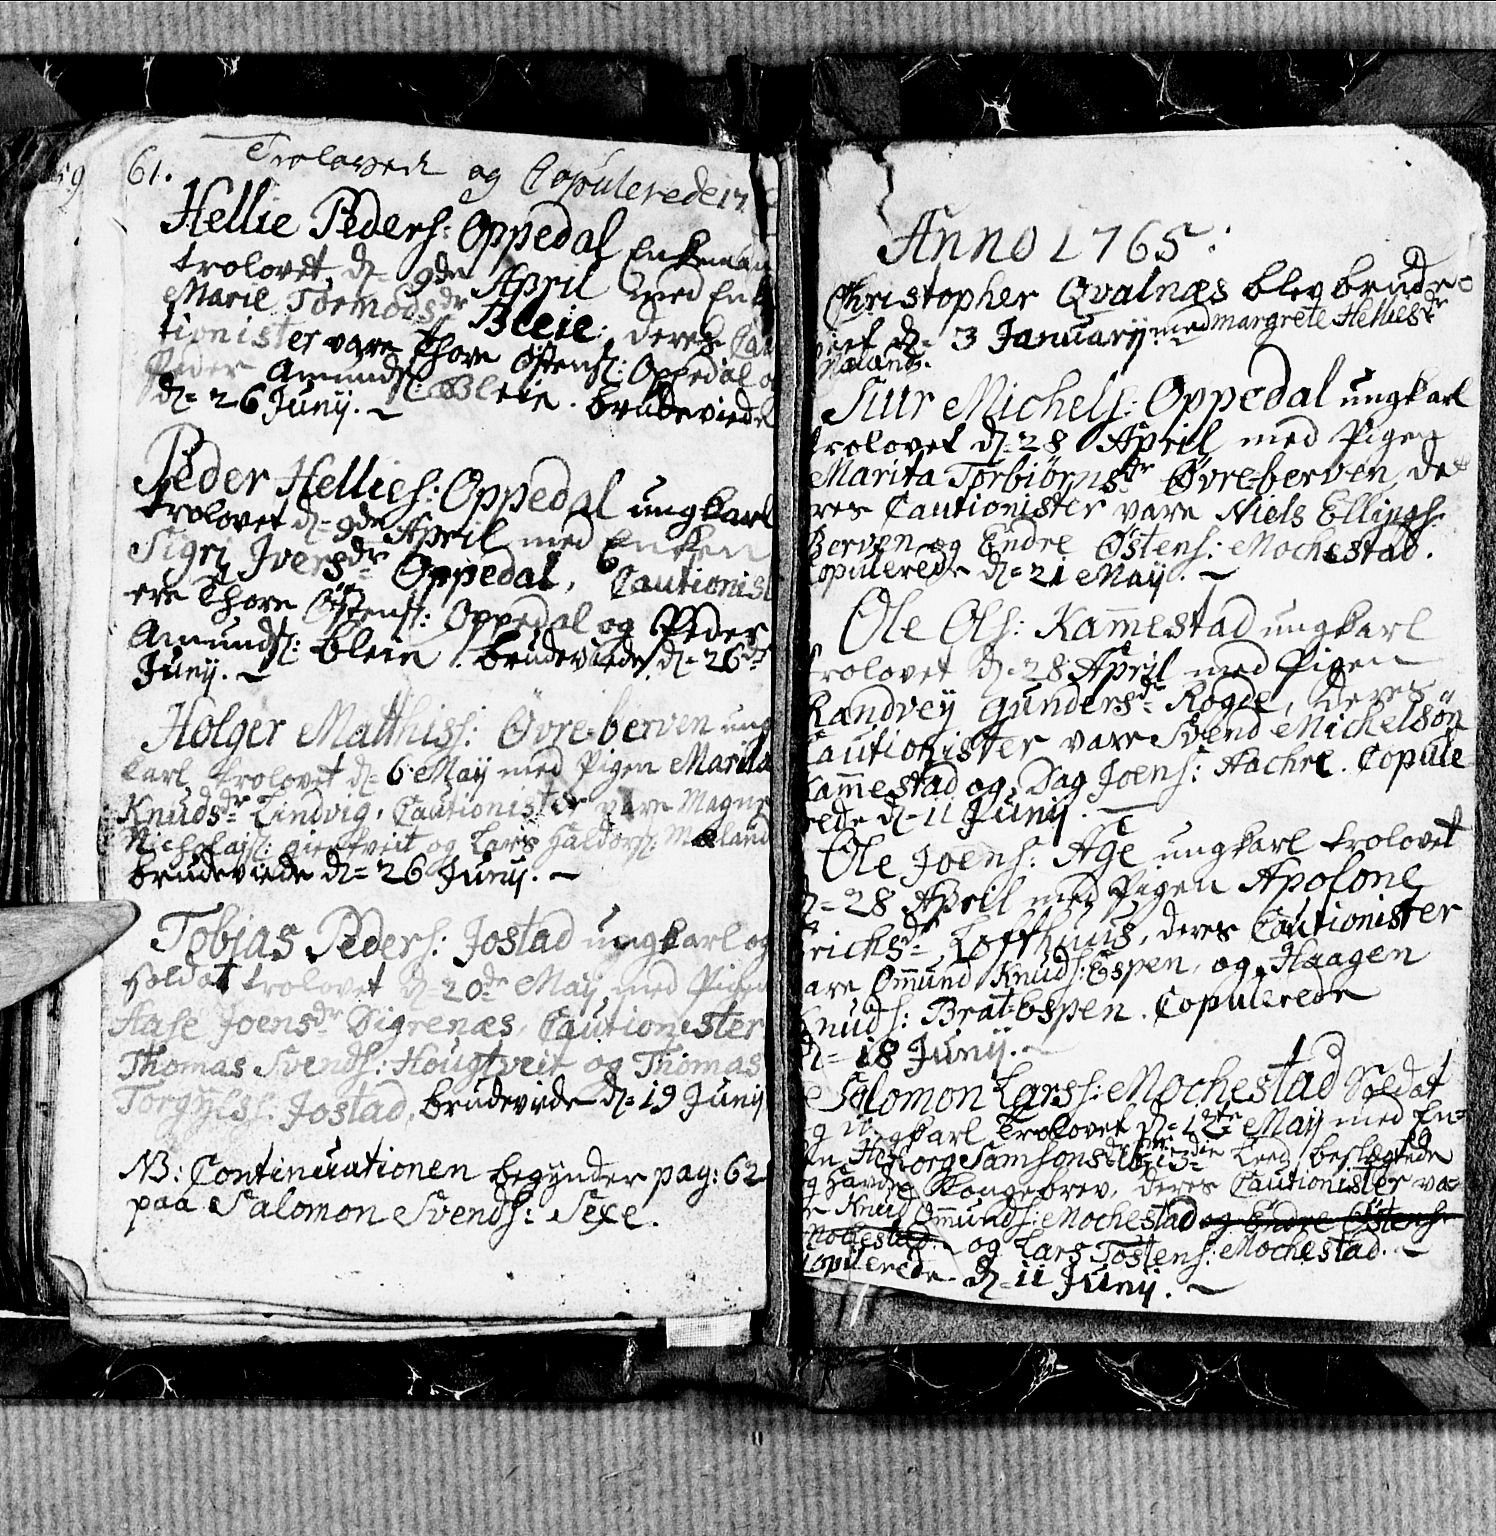 59 61. Troloved og Copulerede 17
Hellie Peders: Oppedal Enkeman
trolovet d= 9de April med Enk
Marie Tormodsdr Bleie; deres Cau
tionister vare Thore Østens: Oppedal og
Peder Amunds: Bleie. brudeviede
d= 26 Junij. —
Peder Hellies: Oppedal ungkarl
trolovet d= 9de April med Enken
Sigri Iversdr Oppedal, Cautionist
ere Thore Østens: Oppedal og Peder
Amunds: bleie. brudeviede d= 26de
Junij. —
Holger Matthiss: Øvre-berven ung
karl, trolovet d= 6 Maij med Pigen Marita
Knudsdr Tindvig, Cautionister vare Magne
Nicholais: og Lars Haldors: Mæland
brudeviede d= 26 Junij. —
Tobias Peders: Jostad ungkarl og
Soldat trolovet d= 20de Maij med Pigen
Aase Joensdr Digrenæs, Cautionister
Thomas Svends: Hougtveit og Thomas
Torgylss: Jostad, brudeviede d= 19 Junij
NB: Continuationen begynder pag: 62
paa Salomon Svends: Sexe.
Anno 1765:
Christopher Qvalnæs blev brude=
viet d= 3 Januarij med Margrete Helliesdr
Mæland.
Siur Michels: Oppedal ungkarl
trolovet d= 28 April med Pigen
Marita Torbiørnsdr Øvre-berven, de=
res Cautionister vare Niels Ellings:
Berven og Endre Østens: Mochestad.
Copulerede d= 21 Maij. —
Ole Ols: Kam̄estad ungkarl
trolovet d= 28 April med Pigen
Randvey Gundersdr Rogde, deres
Cautionister vare Svend Michelsøn
Kam̄estad og Dag Joens: Aachre. Copule=
rede d= 11 Junij. —
Ole Joens: Age ungkarl trolovet
d= 28 April med Pigen Apolone
Erichsdr Lofthuus, deres Cautionister
vare Om̄und Knuds: Espen, og Haagen
Knuds: Brat-Espen. Copulerede
d= 18 Junij. —
Salomon Larss: Mochestad Soldat
og Ungkarl trolovet d= 12te Maij med En=
ken Herborg Samsonsdr i 3die Leed beslægtede
og havde Kongebrev, deres Cautionister va=
re Knud Om̄unds: Mochestad og Endre Østens:
Mochestad. og Lars Tostens: Mochestad. —
Copulerede d= 11 Junij. —